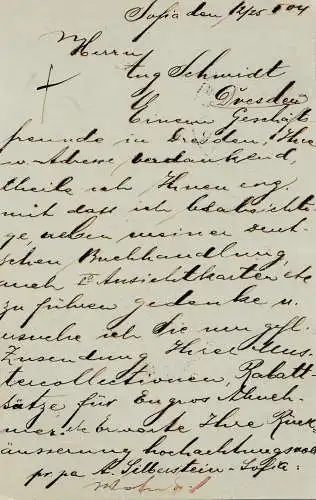 Sofia den 12/25 904
Herrn
Aug Schmidt
Dresden
Einem Geschäfts
freunde in Dresden, Ihre
w. Adresse verdankend,
theile ich Ihnen erg.
mit dass ich beabsichti
ge neben meiner deut-
schen Buchhandlung,
auch Ansichtkarten etc
zu führen gedenke u.
ersuche ich Sie um gefl.
Zusendung Ihrer Mus-
tercollectionen, Rabatt-
sätze für Engros Abneh-
mer etc Erwarte Ihre Rück-
äusserung hochachtungsvoll
pr. pa A. Silberstein-Sofia